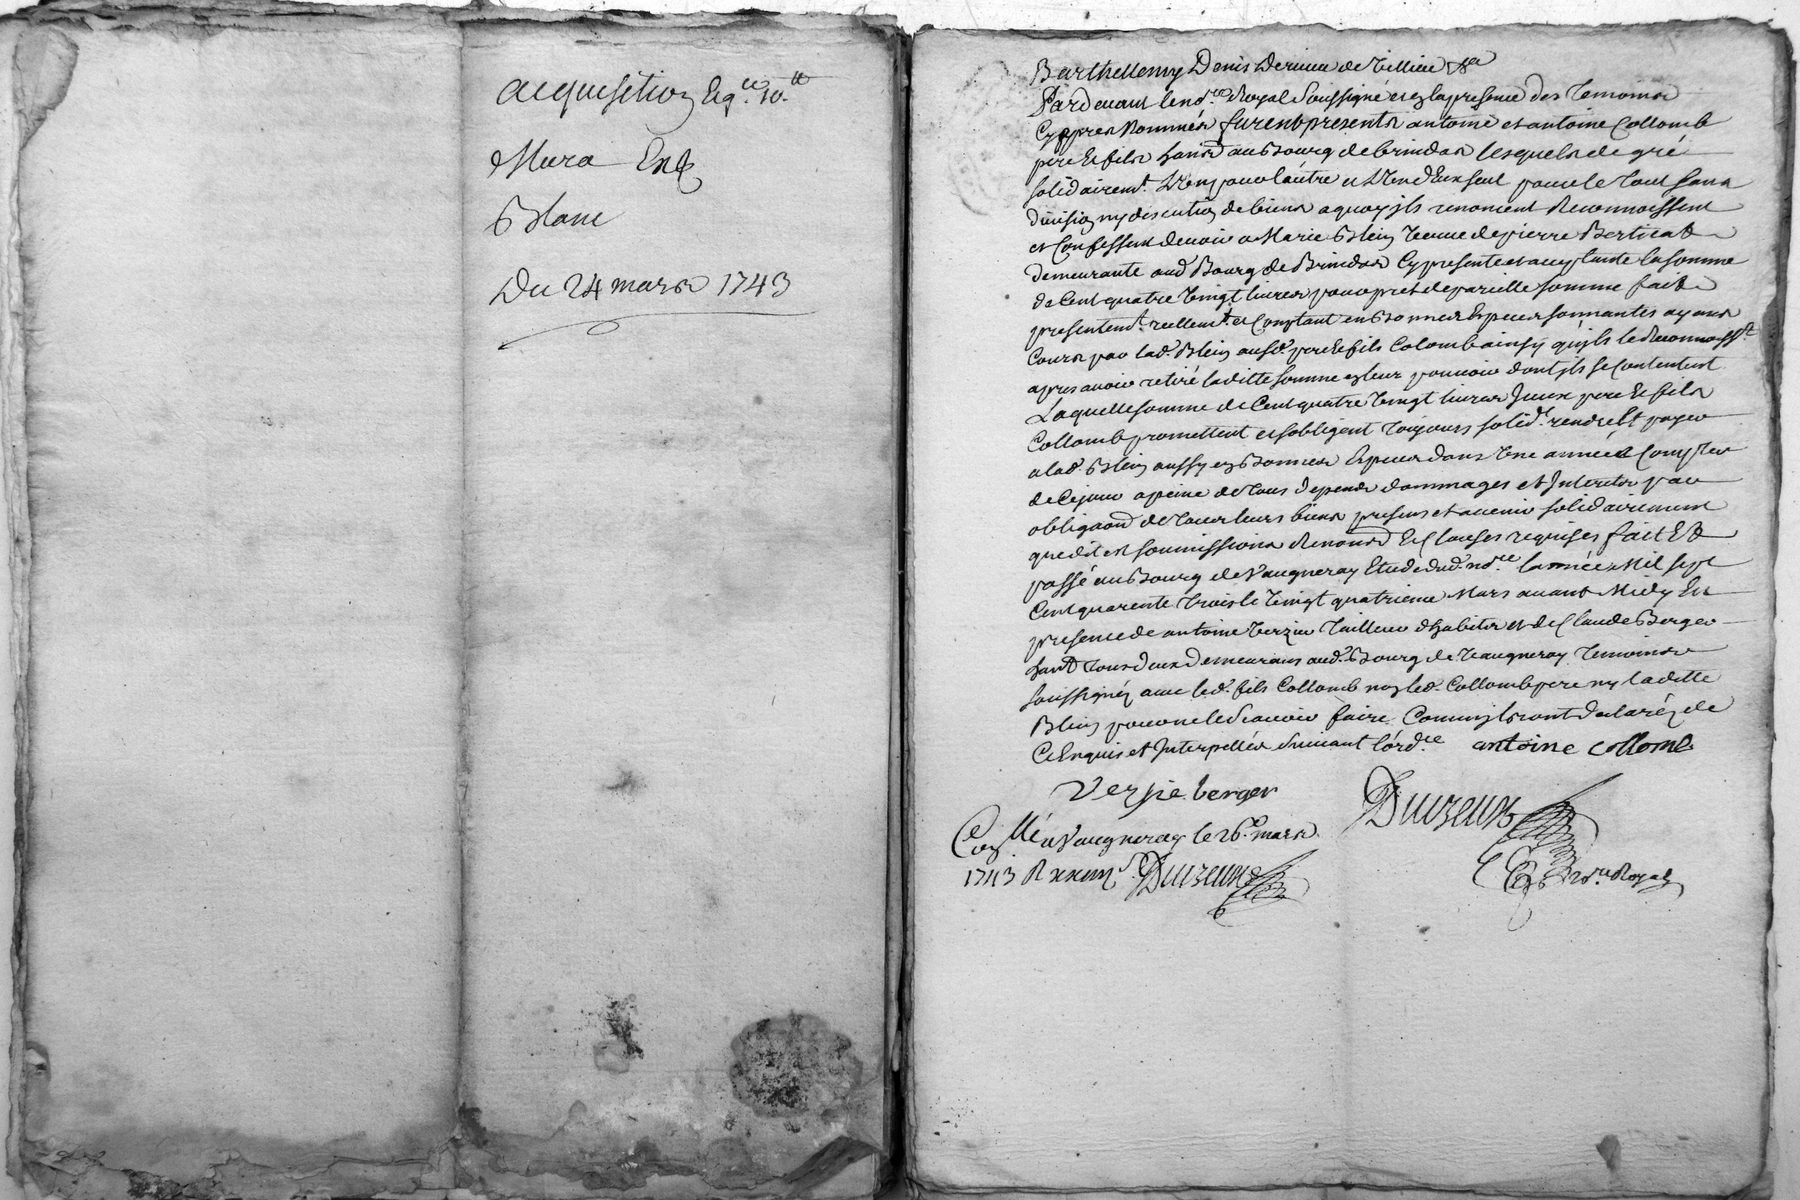 acquisition Eq.ce 10.tt
Mura Enf
Blanc
Du 24 mars 1743
Barthellemy Denis Derieu de Villieu
Pardevant le no.re Royal Soussigné et en la presence des Temoins
Cyapres Nommés furent presents antoine et antoine Collomb
pere et fils hants au Bourg de brindas lesquels de gré
solidairemt. L'un pour l'autre et L'un d'Eux seul pour le tout sans
division ny discution de biens a quoy ils renoncent Reconnoissent
et Confessent devoir a Marie Blein veuve de pierre Berticat
demeurante aud Bourg de Brindas Cy presente et acceptante la somme
de Cent quatre vingt livres pour pret de pareille somme fait
presentemt. reellemt. et Comptant en Bonnes Especes sonnantes ayans
Cours par lad. Blein ausd. pere et fils Colomb ainsy qu'ils le Reconnoisst
apres avoir retiré laditte somme en leur pouvoir dont ils se Contentent
Laquelle somme de Cent quatre vingt livres Iceux pere Et fils
Collomb promettent et s'obligent toujours solid.t rendre Et payer
a lad. Blein aussy en Bonnes Especes dans Une année a Compter
de Cejour a peine de tous depends dommages et Interets par
obligaon de tous leurs biens presens et avenir solidairement
que dit est soumissions Renonons Et Clauses requises fait Et
passé au Bourg de Vaugneray Etude dud. no.re l'année Mil sept
Cent quarente trois le vingt quatrieme Mars avant Midy En
presence de antoine Verzieu tailleur d'habits et de Claude Berger
hant tous deux demeurans aud. Bourg de Vaugneray temoins
soussignéz avec led. fils Collomb non led. Collomb pere ny laditte
Blein pour ne le Scavoir faire Comme ils ont declaréz de
Ce Enquis et Interpellés Suivant l'ord.ce antoine collomb
Versie berger
Duvzeux
Con.llé a Vaugneray le 26.e mars
1743 R xxm s. Duvzeux
No.re Royal